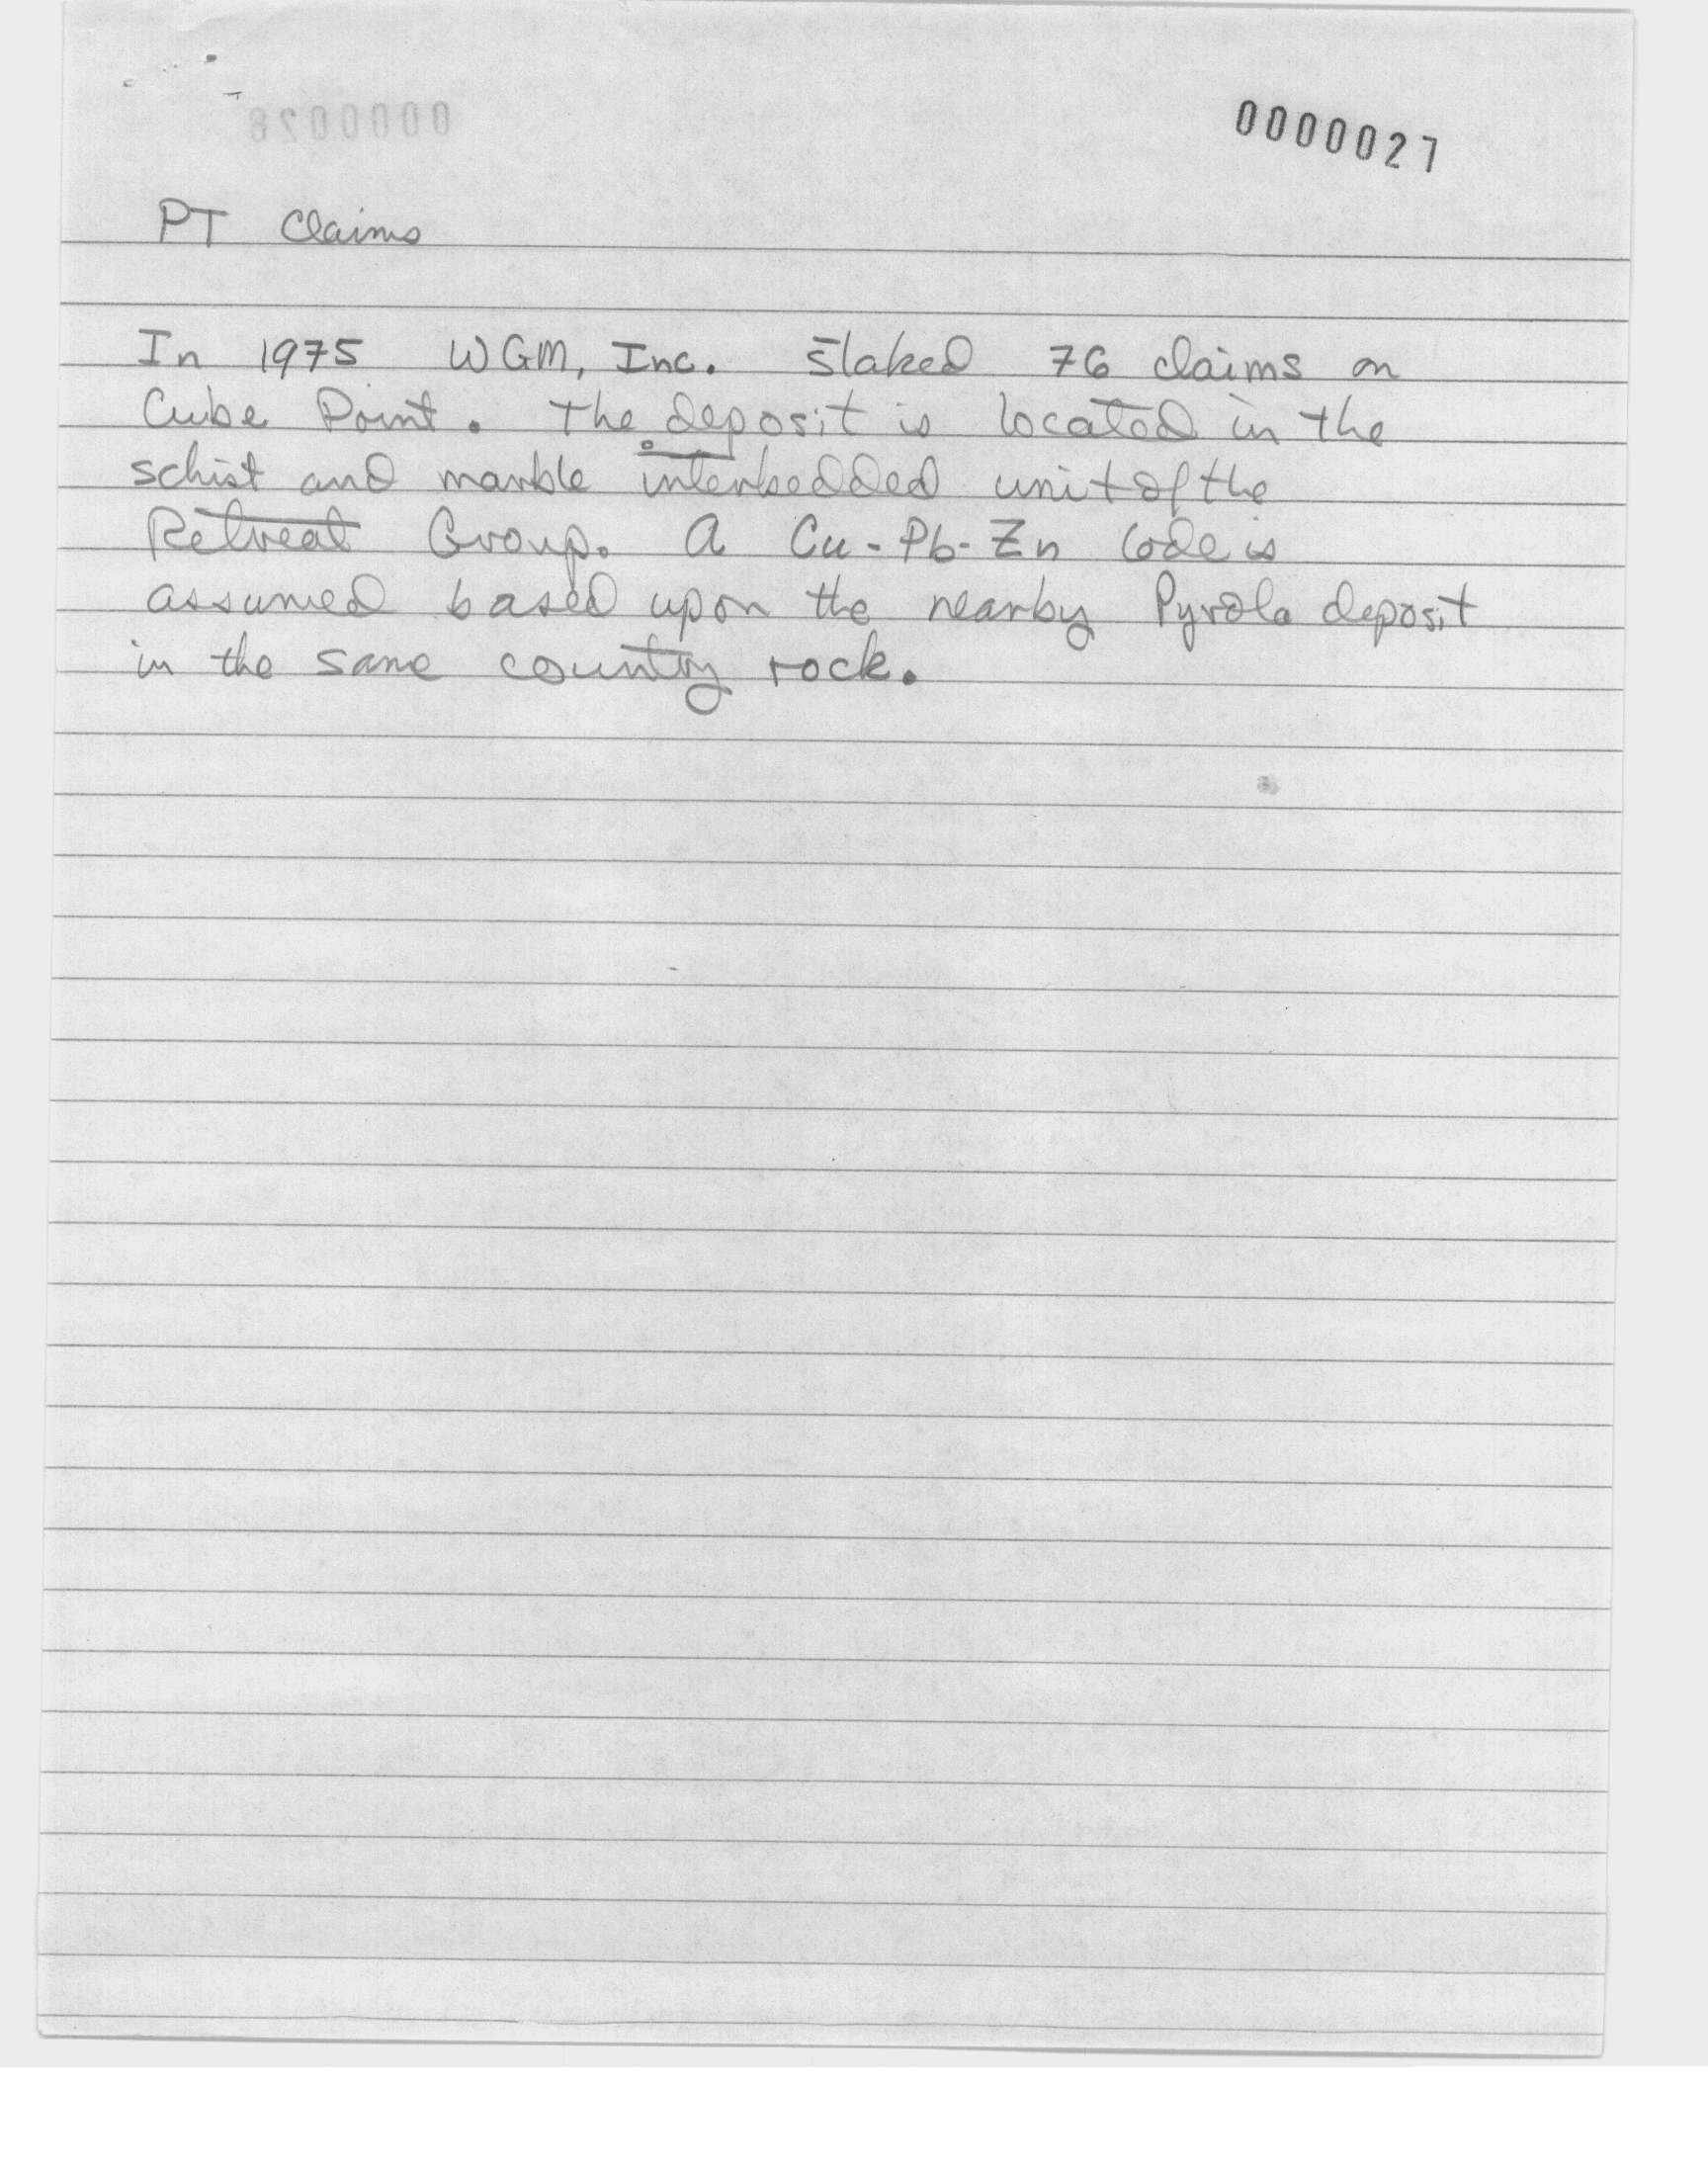 0000027
PT Claims
In 1975 WGM, Inc. staked 76 claims on
Cube Point. The deposit is located in the
schist and marble interbedded unit of the
Retreat Group. A Cu-Pb-Zn lode is
assumed based upon the nearby Pyrola deposit
in the same country rock.